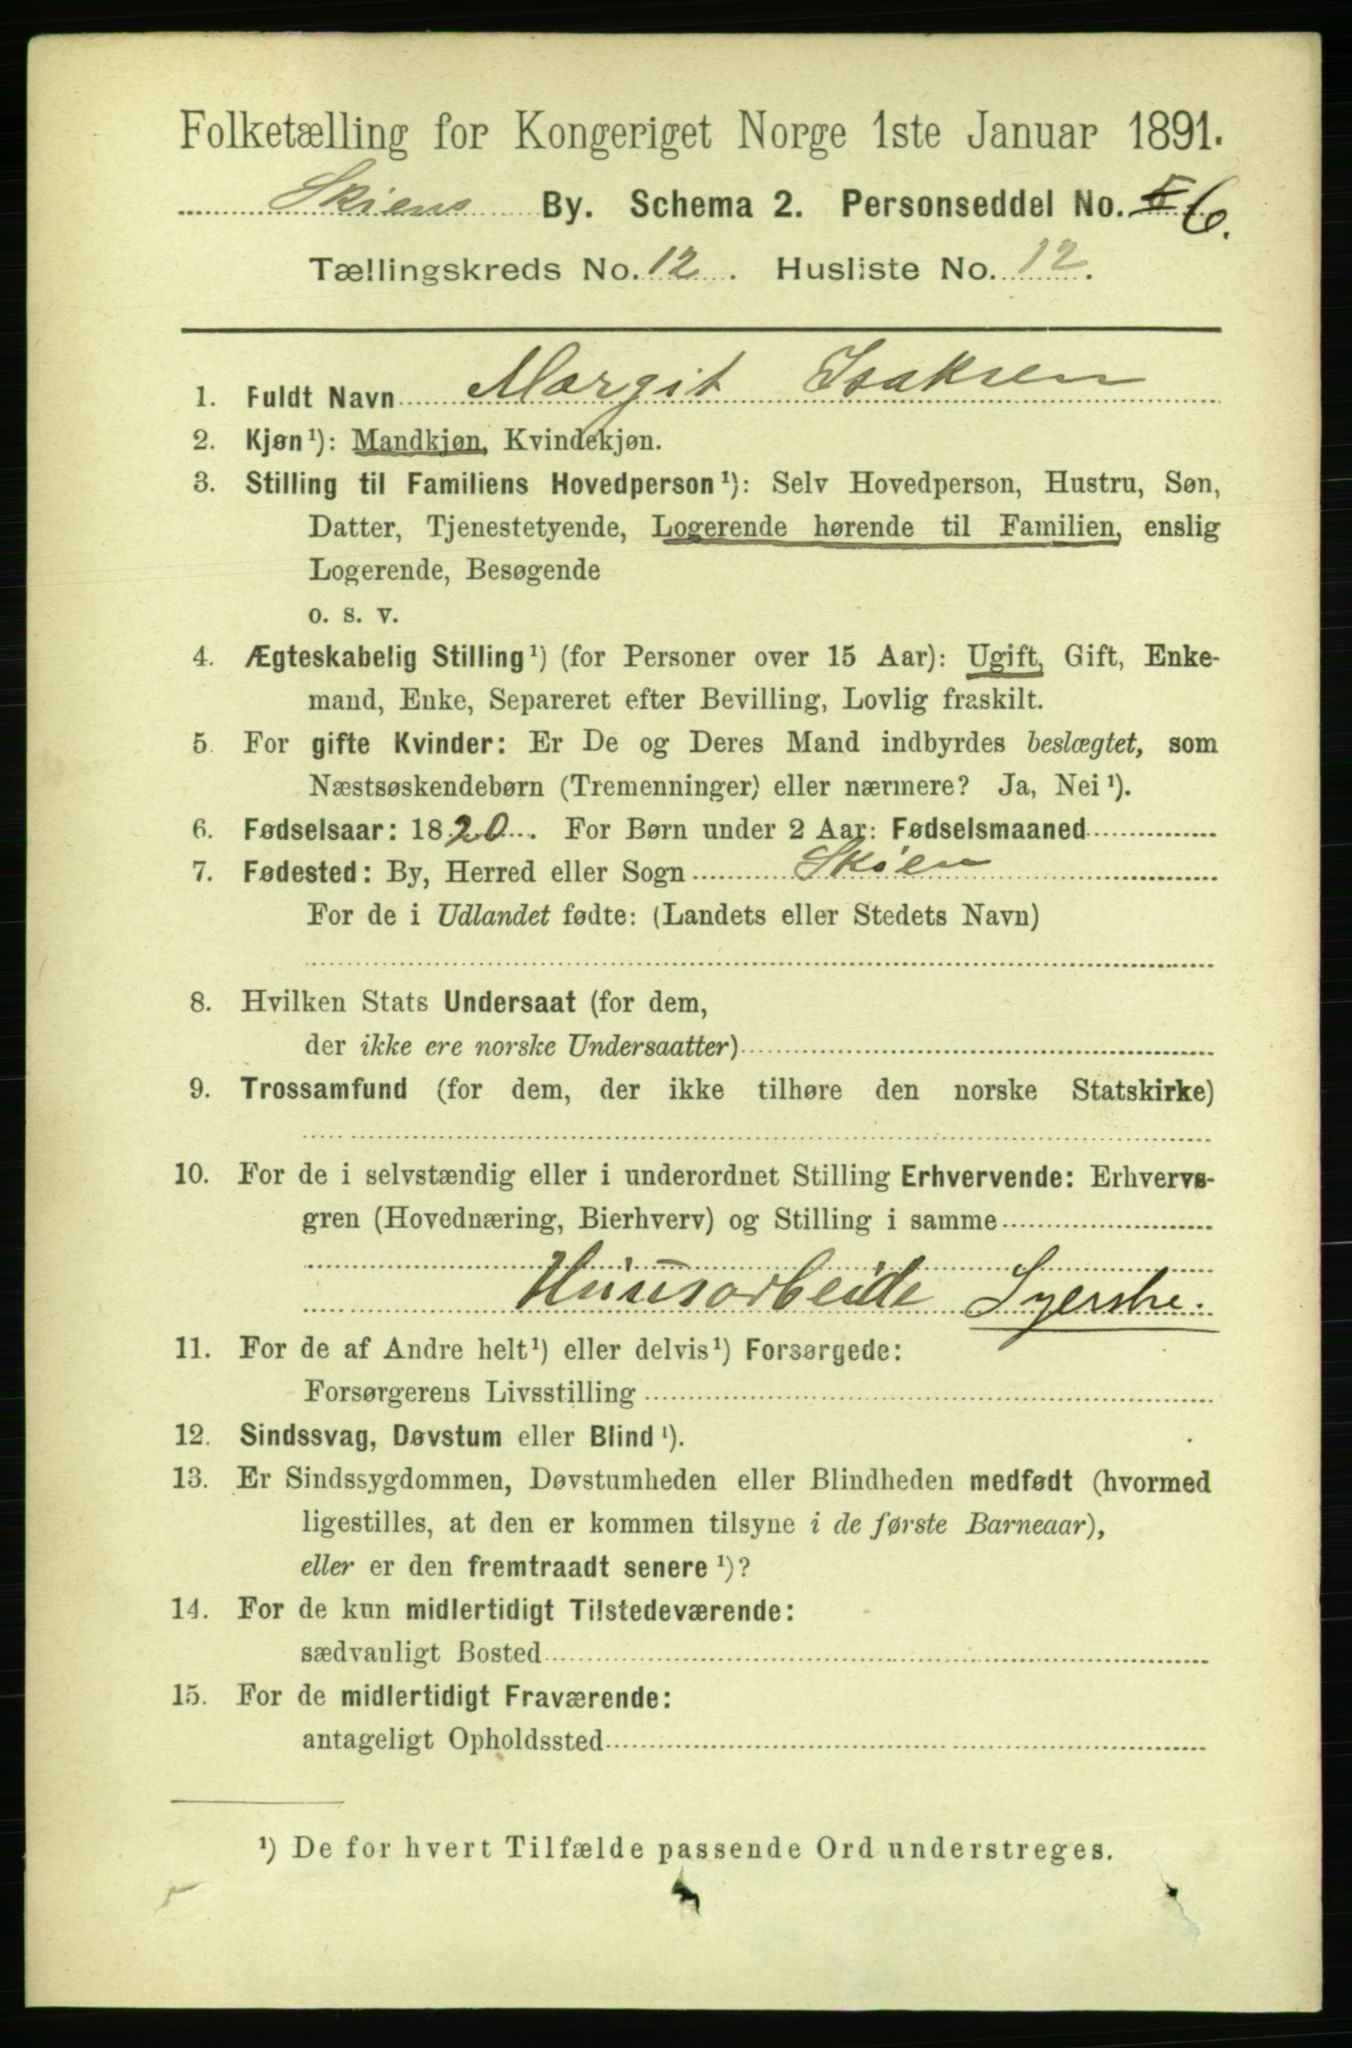 Folketælling for Kongeriget Norge 1ste Januar 1891.
Skiens By. Schema 2. Personseddel No. 6.
Tællingskreds No. 12. Husliste No. 12.
1. Fuldt Navn Margit Isaksen
2. Kjøn¹): Mandkjøn, Kvindekjøn.
3. Stilling til Familiens Hovedperson¹): Selv Hovedperson, Hustru, Søn,
Datter, Tjenestetyende, Logerende hørende til Familien, enslig
Logerende, Besøgende
o. s. v.
4. Ægteskabelig Stilling¹) (for Personer over 15 Aar): Ugift, Gift, Enke-
mand, Enke, Separeret efter Bevilling, Lovlig fraskilt.
5. For gifte Kvinder: Er De og Deres Mand indbyrdes beslægtet, som
Næstsøskendebørn (Tremenninger) eller nærmere? Ja, Nei¹).
6. Fødselsaar: 1820. For Børn under 2 Aar: Fødselsmaaned
7. Fødested: By, Herred eller Sogn Skien
For de i Udlandet fødte: (Landets eller Stedets Navn)
8. Hvilken Stats Undersaat (for dem,
der ikke ere norske Undersaatter)
9. Trossamfund (for dem, der ikke tilhøre den norske Statskirke)
10. For de i selvstændig eller i underordnet Stilling Erhvervende: Erhvervs-
gren (Hovednæring, Bierhverv) og Stilling i samme
Huusarbeide Syerske.
11. For de af Andre helt¹) eller delvis¹) Forsørgede:
Forsørgerens Livsstilling
12. Sindssvag, Døvstum eller Blind¹).
13. Er Sindssygdommen, Døvstumheden eller Blindheden medfødt (hvormed
ligestilles, at den er kommen tilsyne i de første Barneaar),
eller er den fremtraadt senere¹)?
14. For de kun midlertidigt Tilstedeværende:
sædvanligt Bosted
15. For de midlertidigt Fraværende:
antageligt Opholdssted
¹) De for hvert Tilfælde passende Ord understreges.